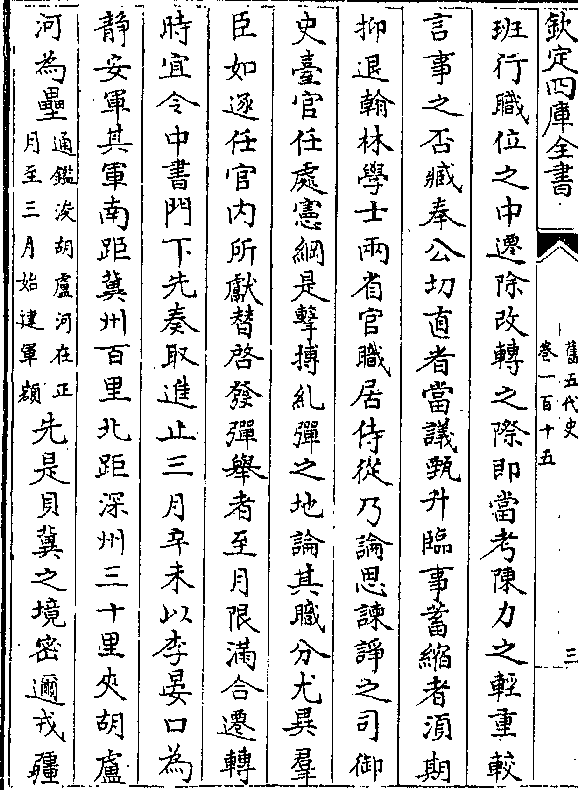 欽定四庫全書
舊五代史
卷一百十五
三
班行職位之中遷除改轉之際即當考陳力之輕重較
言事之否臧奉公切直者當議甄升臨事蓄縮者湏期
抑退翰林學士兩省官職居侍從乃論思諫諍之司御
史臺官任處憲綱是擊搏糺彈之地論其職分尤異羣
臣如逐任官内所獻替啓發彈舉者至月限滿合遷轉
時宜令中書門下先奏取進止三月辛未以李晏口為
静安軍其軍南距冀州百里北距深州三十里夾胡盧
河為壘通鑑浚胡盧河在正月至三月始建軍額先是貝冀之境密邇戎疆